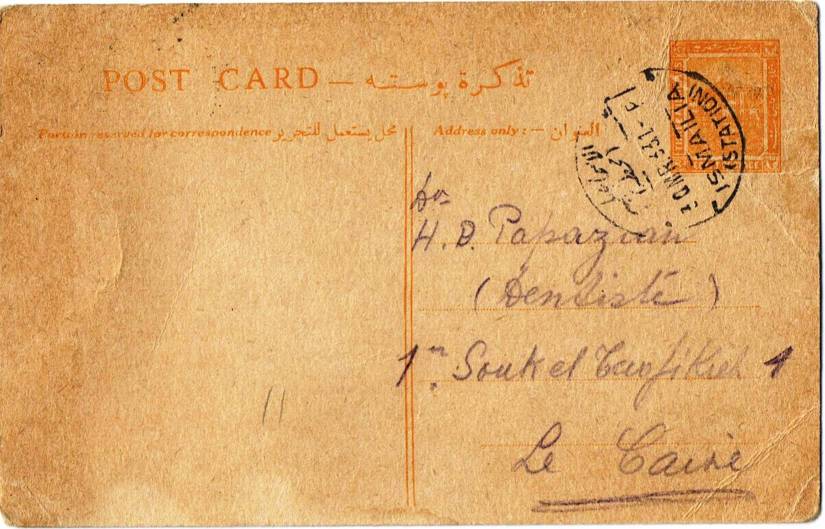 POST CARD — تذكرة بوسته
Portion reserved for correspondence محل يستعمل للتحرير
Address only : — العنوان
ISMAILIA
(STATION)
Dr
H. D. Papazian
(Dentiste)
Souk el Tawfikieh
Le Caire
11